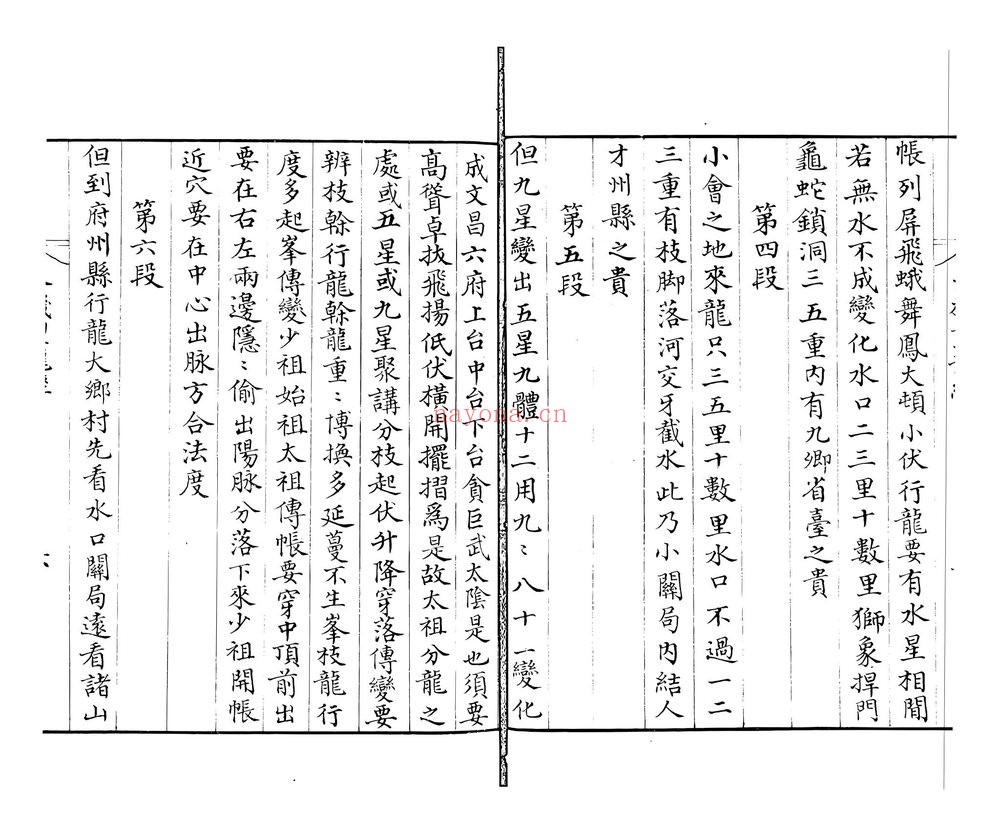 帳列屏飛蛾舞鳳大頓小伏行龍要有水星相間
若無水不成變化水口二三里十數里獅象捍門
龜蛇鎖洞三五重內有九卿省臺之貴
第四段
小會之地來龍只三五里十數里水口不過一二
三重有枝脚落河交牙截水此乃小關局內結人
才州縣之貴
第五段
但九星變出五星九體十二用九〻八十一變化
成文昌六府上台中台下台貪巨武太陰是也須要
高聳卓拔飛揚低伏橫開擺摺為是故太祖分龍之
處或五星或九星聚講分枝起伏升降穿落傳變要
辨枝榦行龍榦龍重〻博換多延蔓不生峯枝龍行
度多起峯傳變少祖始祖太祖傳帳要穿中頂前出
要在右左兩邊隱〻偷出陽脉分落下來少祖開帳
近穴要在中心出脉方合法度
第六段
但到府州縣行龍大鄉村先看水口關局遠看諸山
nayona.cn